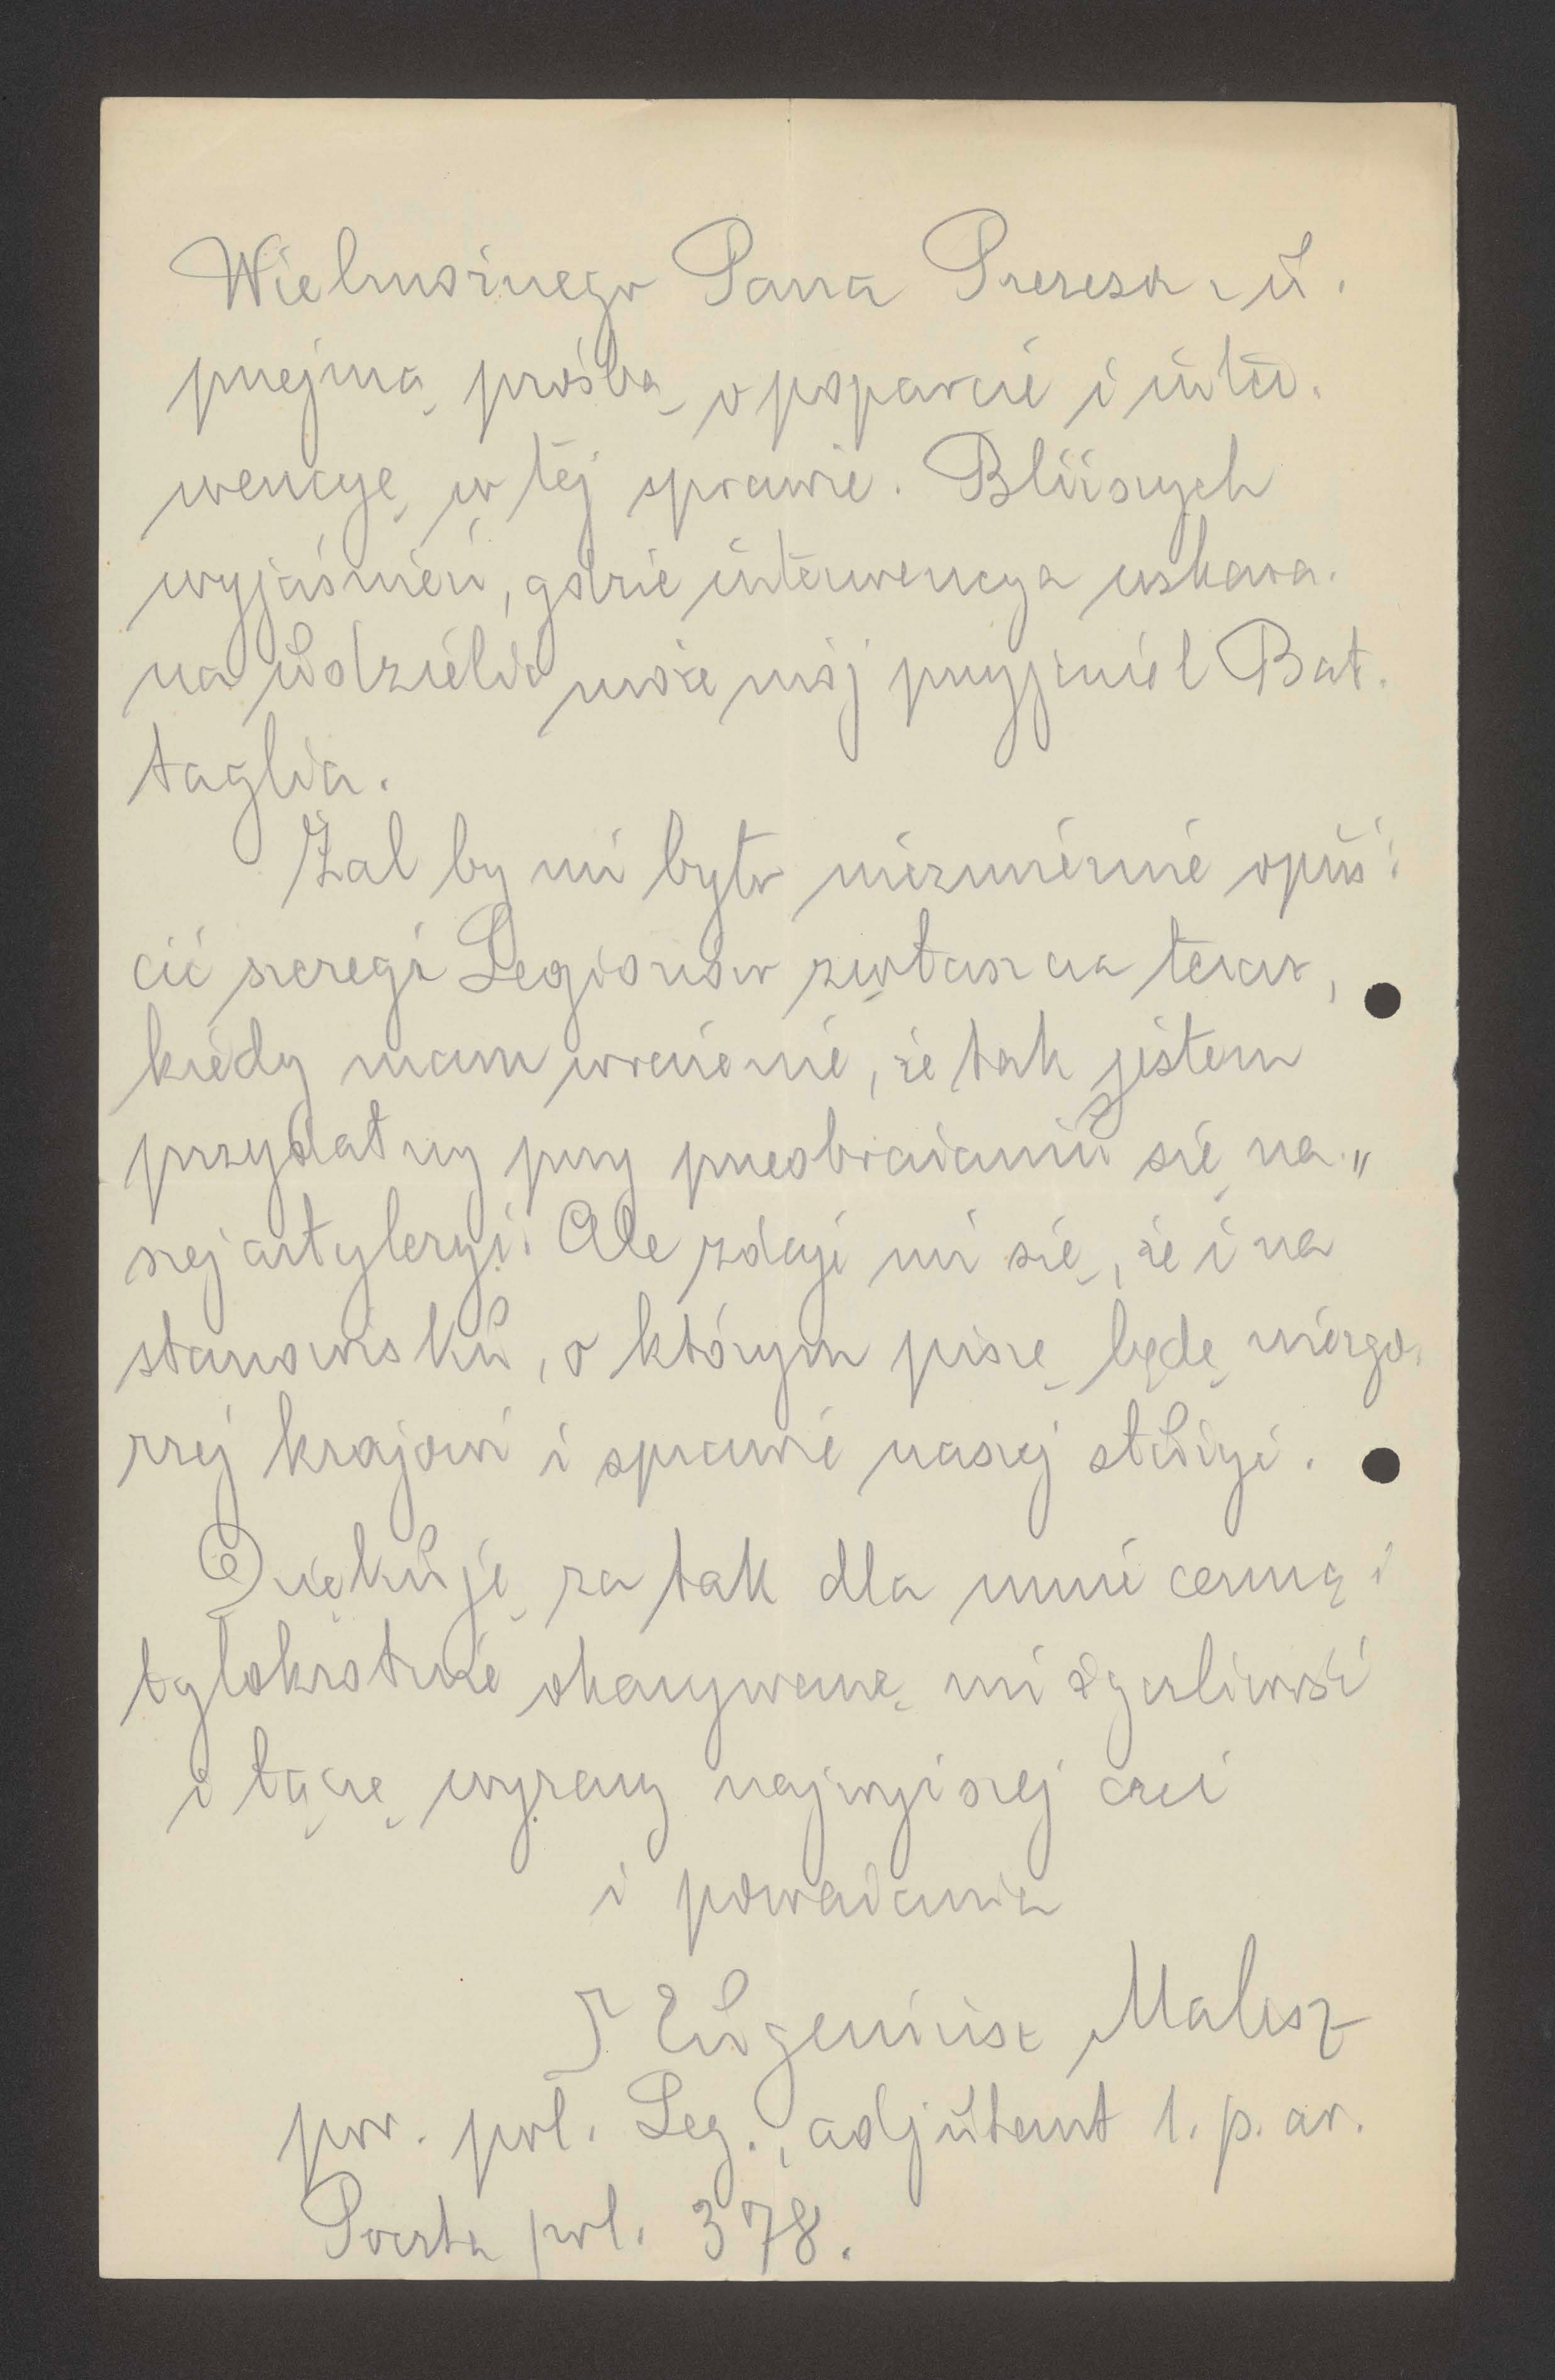 Wielmożnego Pana Prezesa z u-
przejmą prośbą o poparcie i inter-
wencyę w tej sprawie. Bliższych
wyjaśnień, gdzie interwencya wskaza-
na udzielić może mój przyjaciel Bat-
taglia.
Żal by mi było niezmiernie opuś-
cić szeregi Legionów zwłaszcza teraz,
kiedy mam wrażenie, że tak jestem
przydatny przy przeobrażaniu się na-
szej artyleryi. Ale zdaje mi się, że i na
stanowisku, o którym piszę będę niezgo-
rzej krajowi i sprawie naszej służyć.
Dziękuję za tak dla mnie cenną i
tylokrotnie okazywaną mi życzliwość
i łączę wyrazy najwyższej czci
i poważania
Eugeniusz Malesz
por. pol. Leg., adjutant 1. p. ar.
Poczta pol. 378.